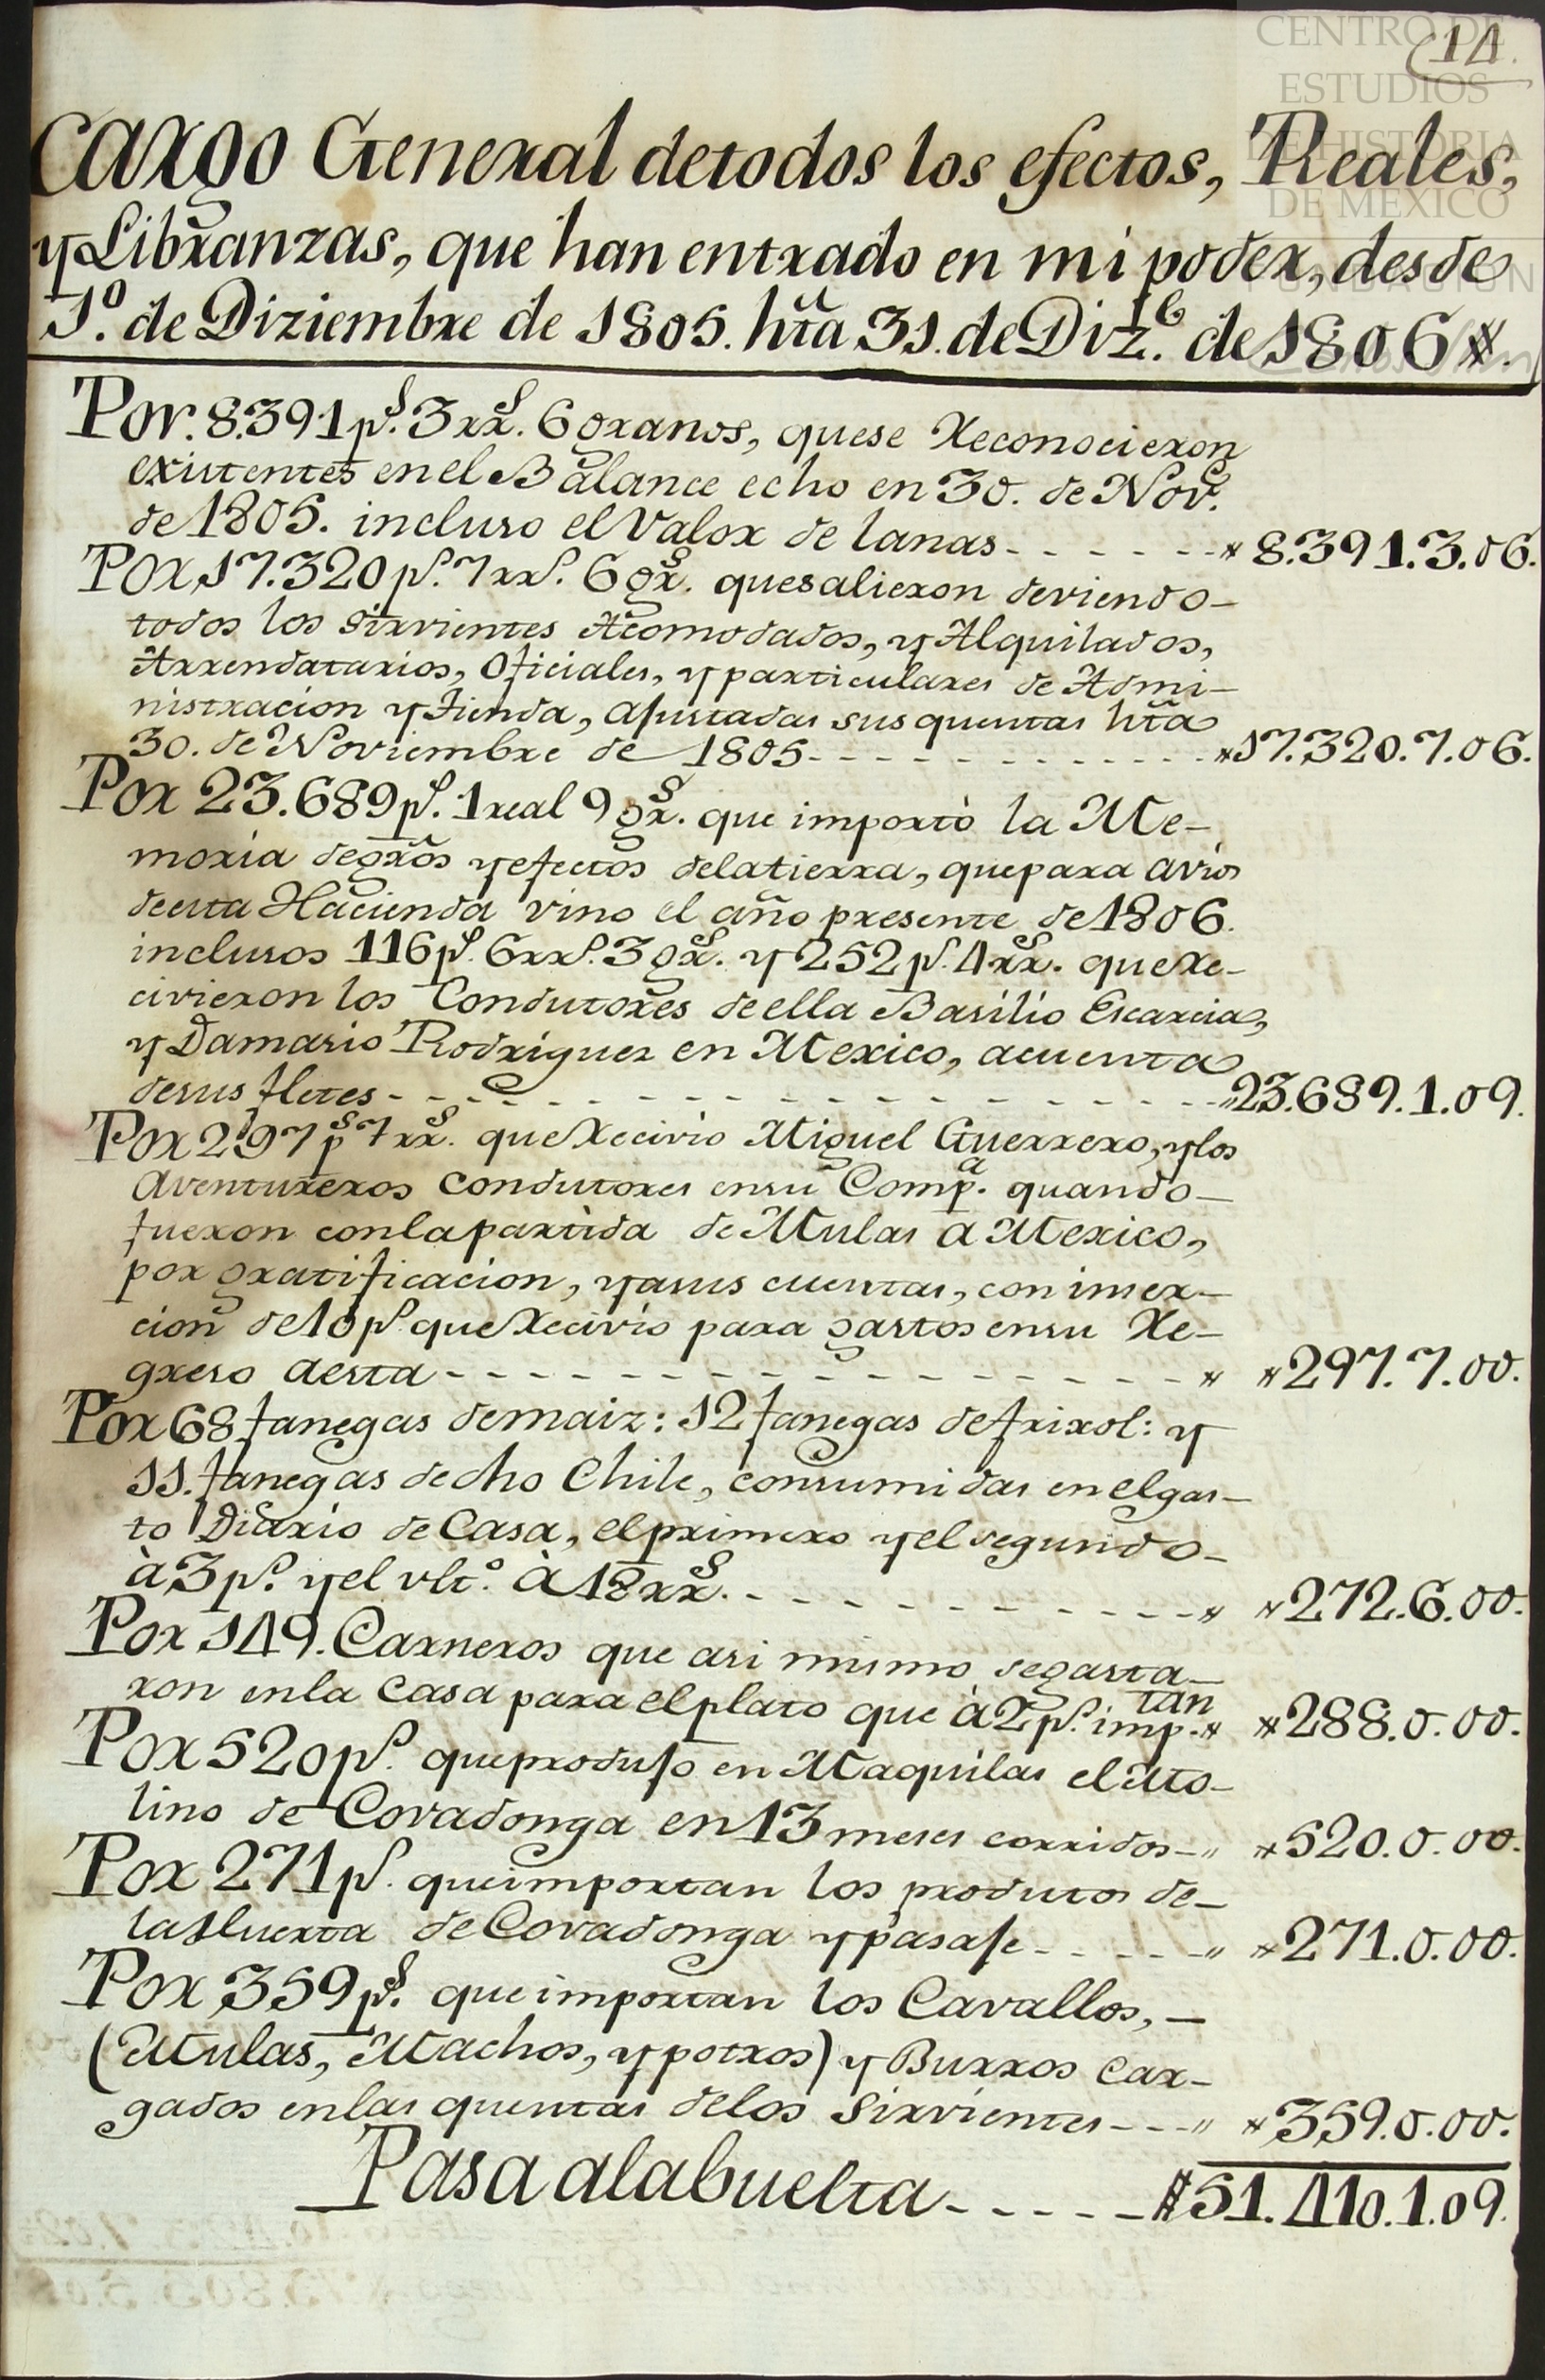 CENTRO DE
ESTUDIOS
DE HISTORIA
DE MEXICO
FUNDACIÓN
14.
Cargo General detodos los efectos, Reales,
y Libranzas, que han entrado en mi poder, desde
1º. de Diziembre de 1805. hta 31. de Dizᵉ. de 1806 #.
Por. 8.391 pˢ. 3 rrˢ. 6 granos, quese Reconocieron
existentes en el Balance echo en 30. de Novᵉ.
de 1805. incluso el Valor de lanas - - - - - - # 8.391.3.06.
Por 17.320 pˢ. 7 rrˢ. 6 grˢ. quesalieron deviendo-
todos los Sirvientes Acomodados, y Alquilados,
Arrendatarios, Oficiales, y particulares de Admi-
nistracion y Tienda, ajustadas sus quentas hta
30. de Noviembre de 1805 - - - - - - - - - - - #17.320.7.06.
Por 23.689 pˢ. 1 real 9 grˢ. que importò la Me-
moria degros y efectos delatierra, quepara avios
deesta Hacienda vino el año presente de 1806.
inclusos 116 pˢ. 6 rrˢ. 3 grˢ. y 252 pˢ. 4 rrˢ. queRe-
civieron los Condutores de ella Basilio Escarcia,
y Damasio Rodriguez en Mexico, acuenta
desus fletes - - - - - - - - - - - - - - - - - "23.689.1.09.
Por 297 pˢ 7 rrˢ. queRecivio Miguel Guerrero, ylos
Aventureros condutores ensu Compᵃ. quando-
fueron conlapartida de Mulas a Mexico,
por gratificacion, yasus cuentas, con inser-
cion de 10 pˢ. queRecivio para gastos ensu Re-
greso aesta - - - - - - - - - - - - - - - - - # #297.7.00.
Por 68 fanegas demaiz: 12 fanegas defrixol: y
11. fanegas de dho Chile, consumidas en elgas-
to Diario de Casa, elprimero yel segundo-
à 3 pˢ. yel vltº. à 18 rrˢ. - - - - - - - - - - - # #272.6.00.
Por 149. Carneros que asi mismo segasta-
ron enla Casa para elplato que à 2 pˢ. imp.tan # #288.0.00.
Por 520 pˢ. queprodujo en Maquilas el Mo-
lino de Covadonga en 13 meses corridos - " #520.0.00.
Por 271 pˢ. queimportan los produtos de-
laHuerta de Covadonga ypasaje - - - - - " #271.0.00.
Por 359 pˢ. que importan los Cavallos, -
(Mulas, Machos, y potros) y Burros car-
gados enlas quentas delos Sirvientes - - - " #359.0.00.
Pasa alabuelta - - - - - #51.410.1.09.